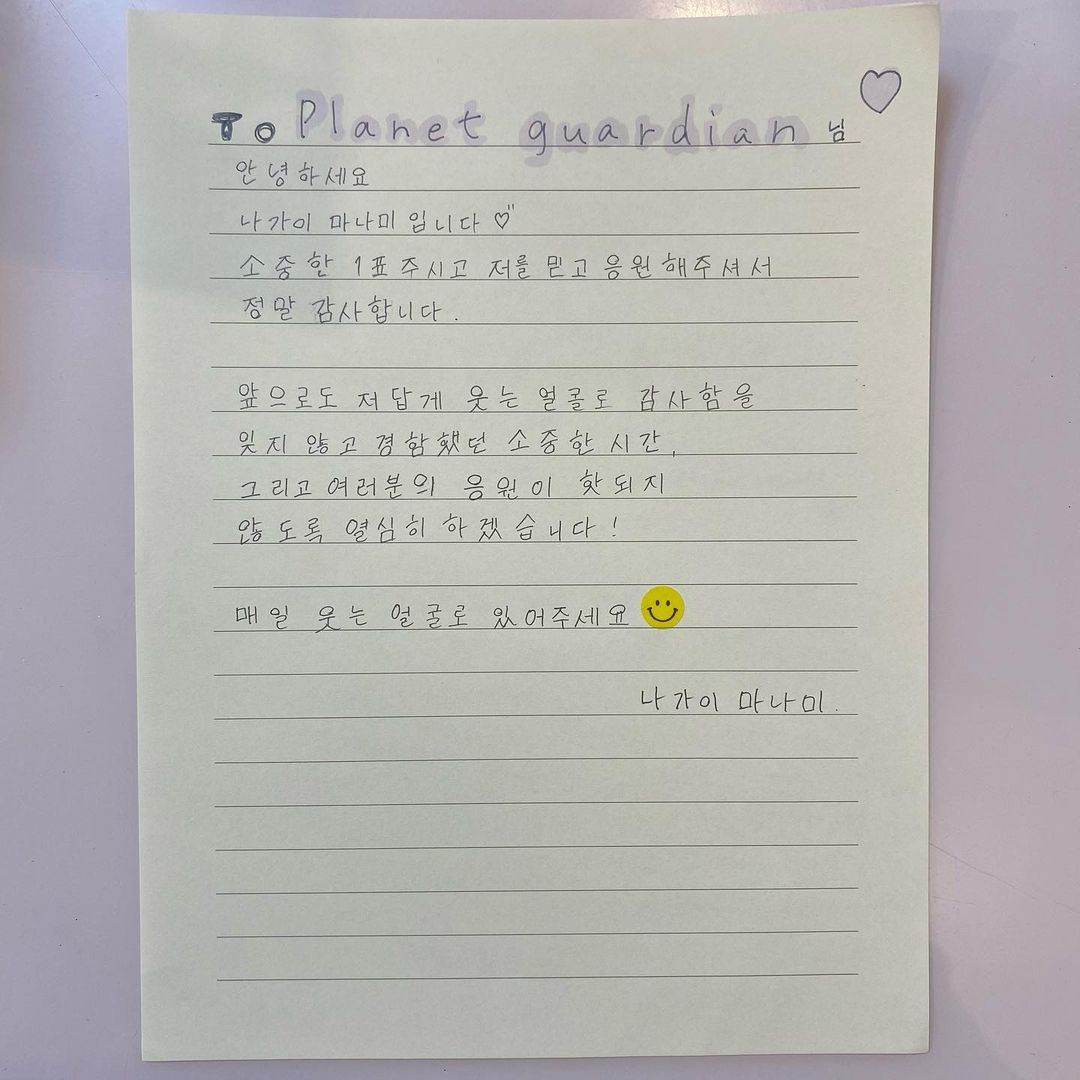 To Planet guardian 님 ♡
안녕하세요
나가이 마나미입니다 ♡"
소중한 1표 주시고 저를 믿고 응원해주셔서
정말 감사합니다.
앞으로도 저답게 웃는 얼콜로 감사함을
잊지 않고 경함했던 소중한 시간,
그리고 여러분의 응원이 핫되지
않도록 열심히 하겠습니다!
매일 웃는 얼굴로 있어주세요
나가이 마나미.